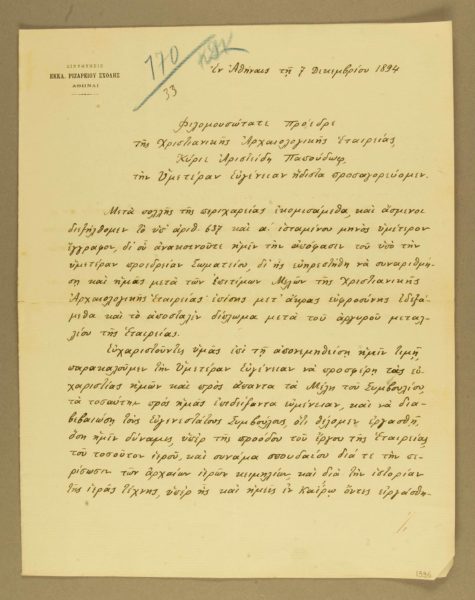 ΔΙΕΥΘΥΝΣΙΣ
ΕΚΚΛ. ΡΙΖΑΡΕΙΟΥ ΣΧΟΛΗΣ
ΑΘΗΝΑΙ
170
33
Ἐν Ἀθήναις τῇ 7 Δεκεμβρίου 1894
Φιλομουσώτατε Πρόεδρε
τῆς Χριστιανικῆς Ἀρχαιολογικῆς Ἑταιρείας,
Κύριε Ἀριστείδη
τὴν Ὑμετέραν εὐγένειαν ἥδιστα προσαγορεύομεν.
Μετὰ πολλῆς τῆς περιχαρείας ἐκομισάμεθα, καὶ ἄσμενοι
διεξήλθομεν τὸ ὑπ' ἀριθ. 637 καὶ α΄ ἱσταμένου μηνὸς ὑμέτερον
ἔγγραφον, δι' οὗ ἀνακοινοῦτε ἡμῖν τὴν ἀπόφασιν τοῦ ὑπὸ τὴν
ὑμετέραν προεδρείαν Σωματείου, δι' ἧς εὐηρεστήθη νὰ συναριθμή-
σῃ καὶ ἡμᾶς μετὰ τῶν ἐπιτίμων Μελῶν τῆς Χριστιανικῆς
Ἀρχαιολογικῆς Ἑταιρείας· ἐπίσης μετ' ἄκρας εὐφροσύνης ἐδεξά-
μεθα καὶ τὸ ἀποσταλὲν δίπλωμα μετὰ τοῦ ἀργυροῦ μεταλ-
λίου τῆς Ἑταιρείας.
Εὐχαριστοῦντες ὑμᾶς ἐπὶ τῇ ἀπονεμηθείσῃ ἡμῖν τιμῇ,
παρακαλοῦμεν τὴν Ὑμετέραν Εὐγένειαν νὰ προσφέρῃ τὰς εὐ-
χαριστίας ἡμῶν καὶ πρὸς ἅπαντα τὰ Μέλη τοῦ Συμβουλίου,
τὰ τοσαύτην πρὸς ἡμᾶς ἐπιδείξαντα εὐμένειαν, καὶ νὰ δια-
βεβαιώσῃ τοὺς εὐγενεστάτους Συμβούλους, ὅτι θέλομεν ἐργασθῆ,
ὅση ἡμῖν δύναμις, ὑπὲρ τῆς προόδου τοῦ ἔργου τῆς Ἑταιρείας
τοῦ τοσοῦτον ἱεροῦ, καὶ συνάμα σπουδαίου διά τε τὴν πε-
ρίσωσιν τῶν ἀρχαίων ἱερῶν κειμηλίων, καὶ διὰ τὴν ἱστορίαν
τῆς ἱερᾶς τέχνης, ὑπὲρ ἧς καὶ ἡμεῖς ἐν Καΐρῳ ὄντες εἰργάσθη-